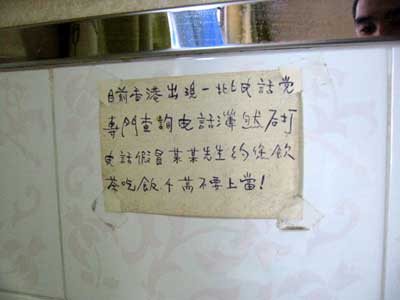 目前香港出現一批电話党
專門查詢电話簿然后打
电話假冒某某先生约你飲
茶吃飯千萬不要上當!